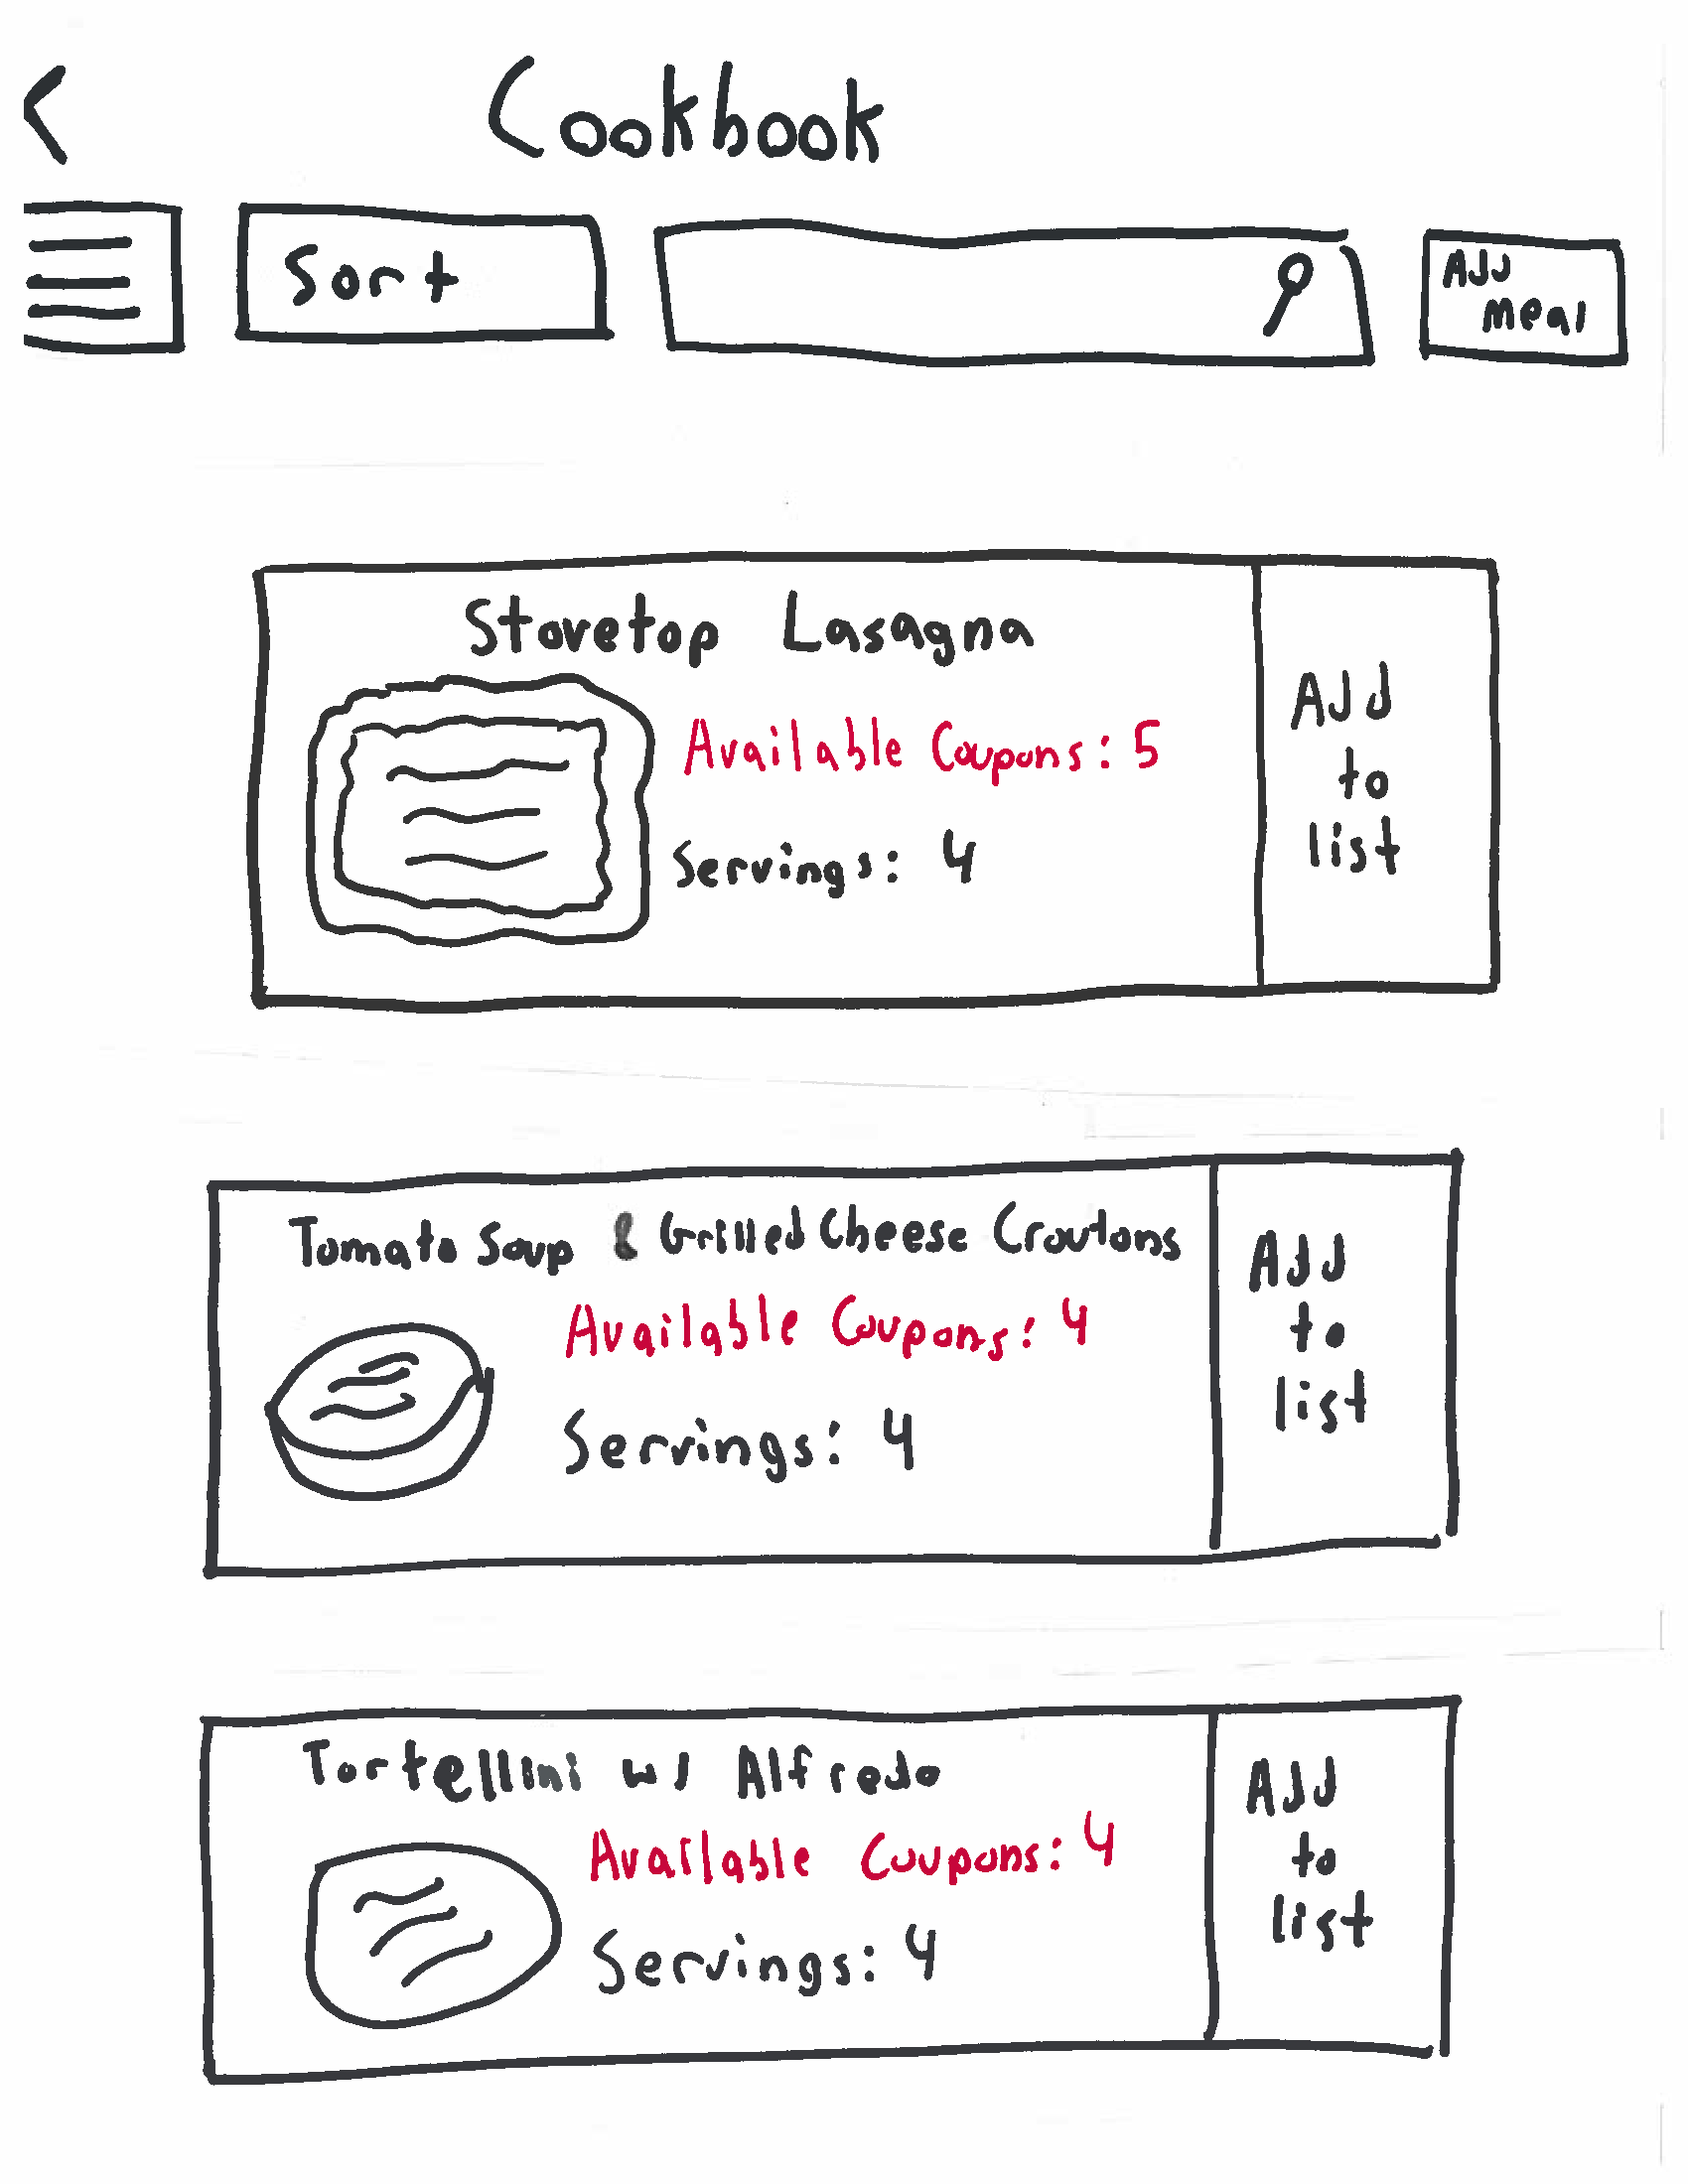 Cookbook
Sort
Add
meal
Stovetop Lasagna
Available Coupons: 5
Servings: 4
Add
to
list
Tomato Soup & Grilled Cheese Croutons
Available Coupons: 4
Servings: 4
Add
to
list
Tortellini w/ Alfredo
Available Coupons: 4
Servings: 4
Add
to
list